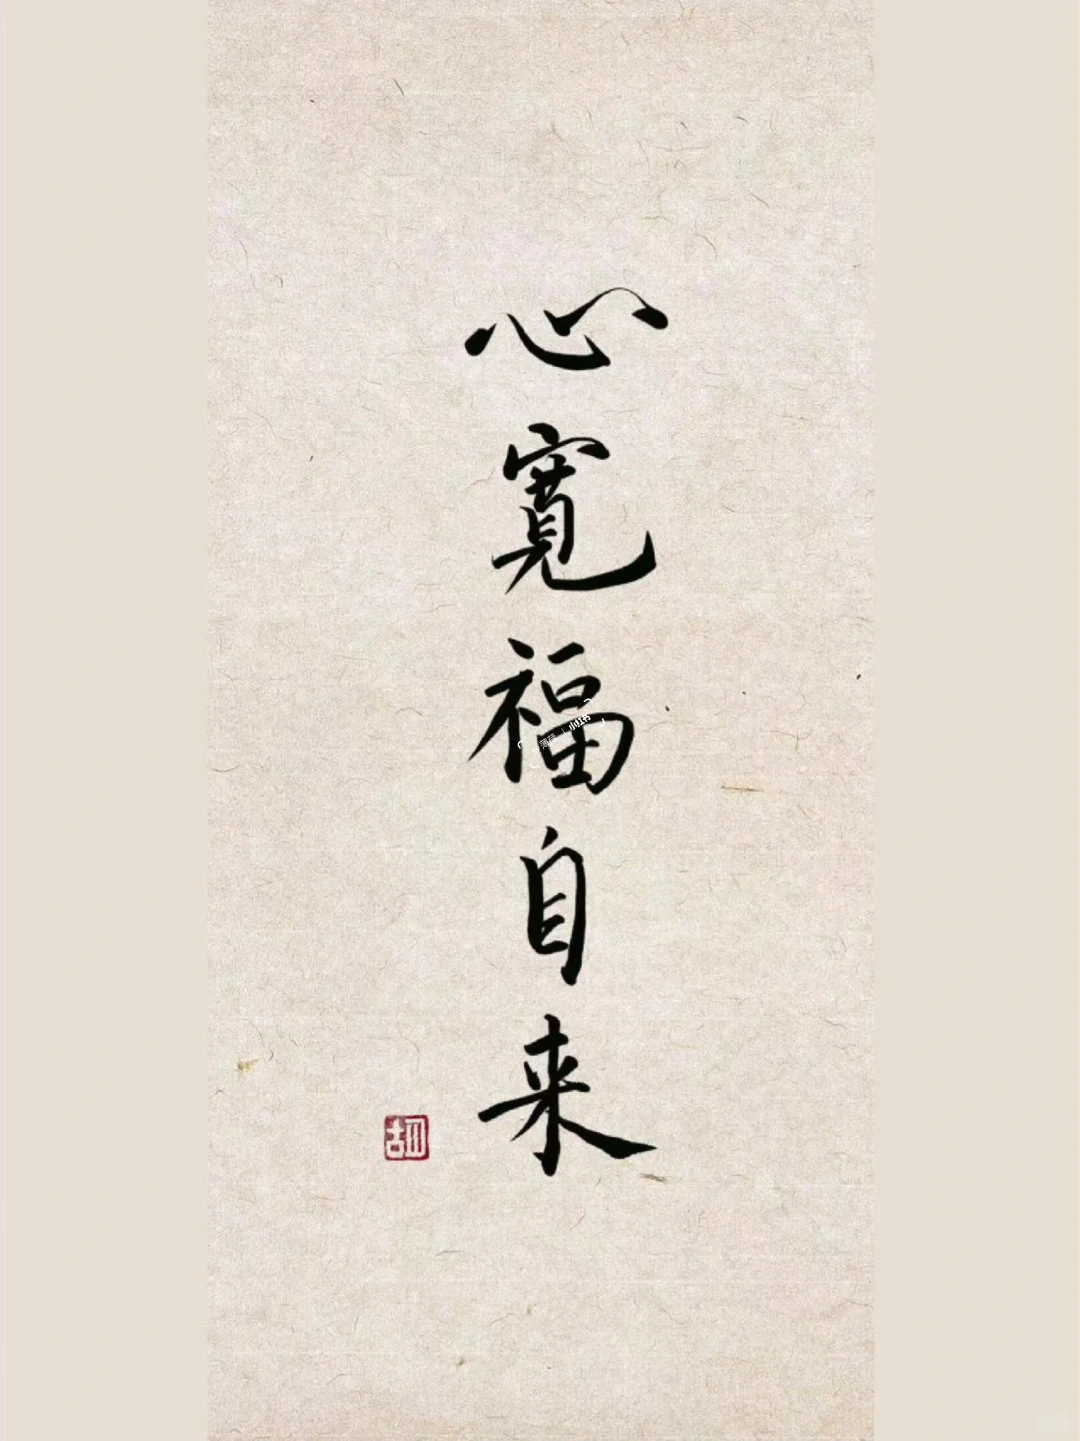 心寬福自来
胡